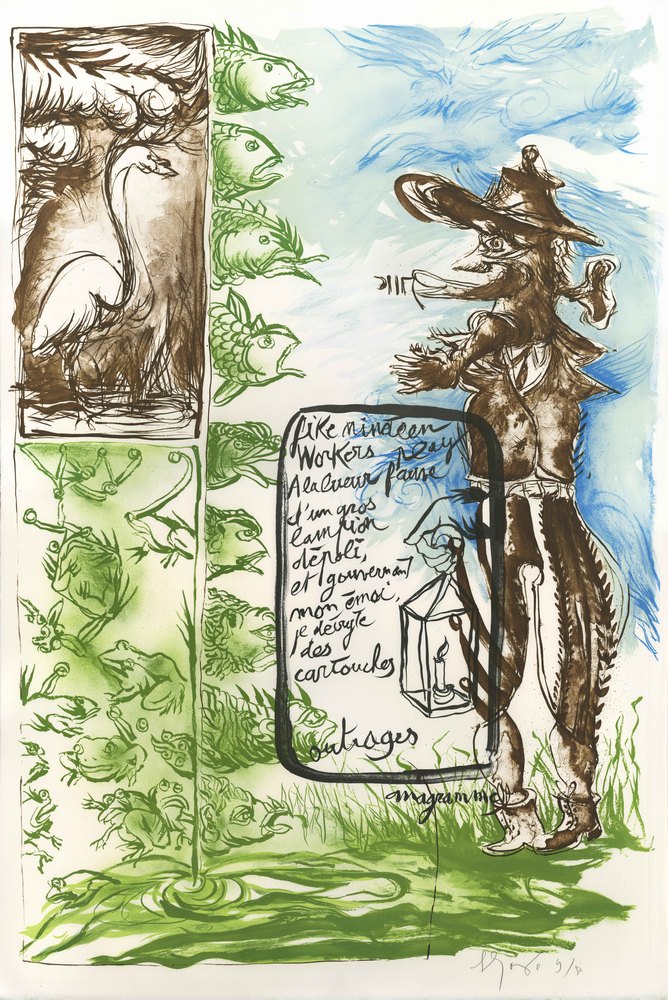 like mindean
Workers play
A la lueur fauve
d'un gros
lampion
dépoli,
et gouvernant
mon émoi,
je dévyte
des
cartouches
outrages
anagramme
9/50